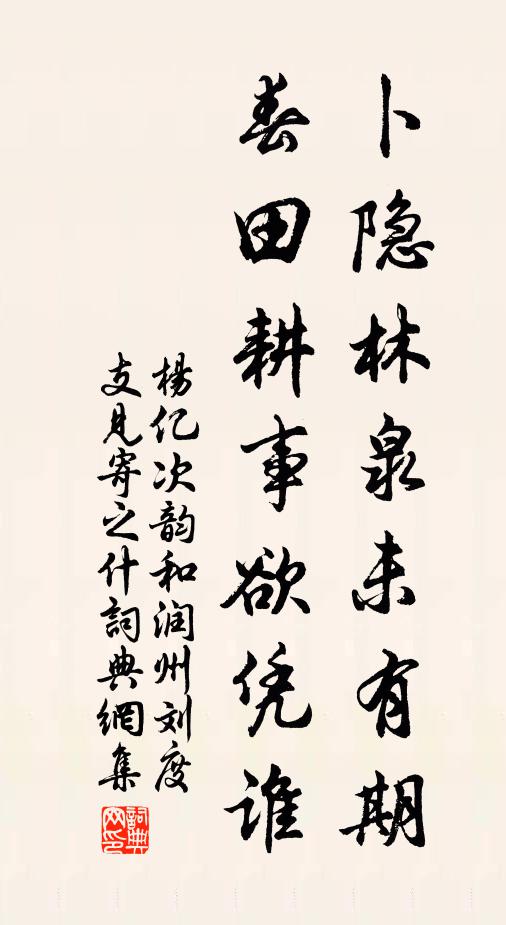 卜隐林泉未有期
春田耕事欲凭谁
杨亿次韵和润州刘度
支见寄之什詞典網集
詞典
网印